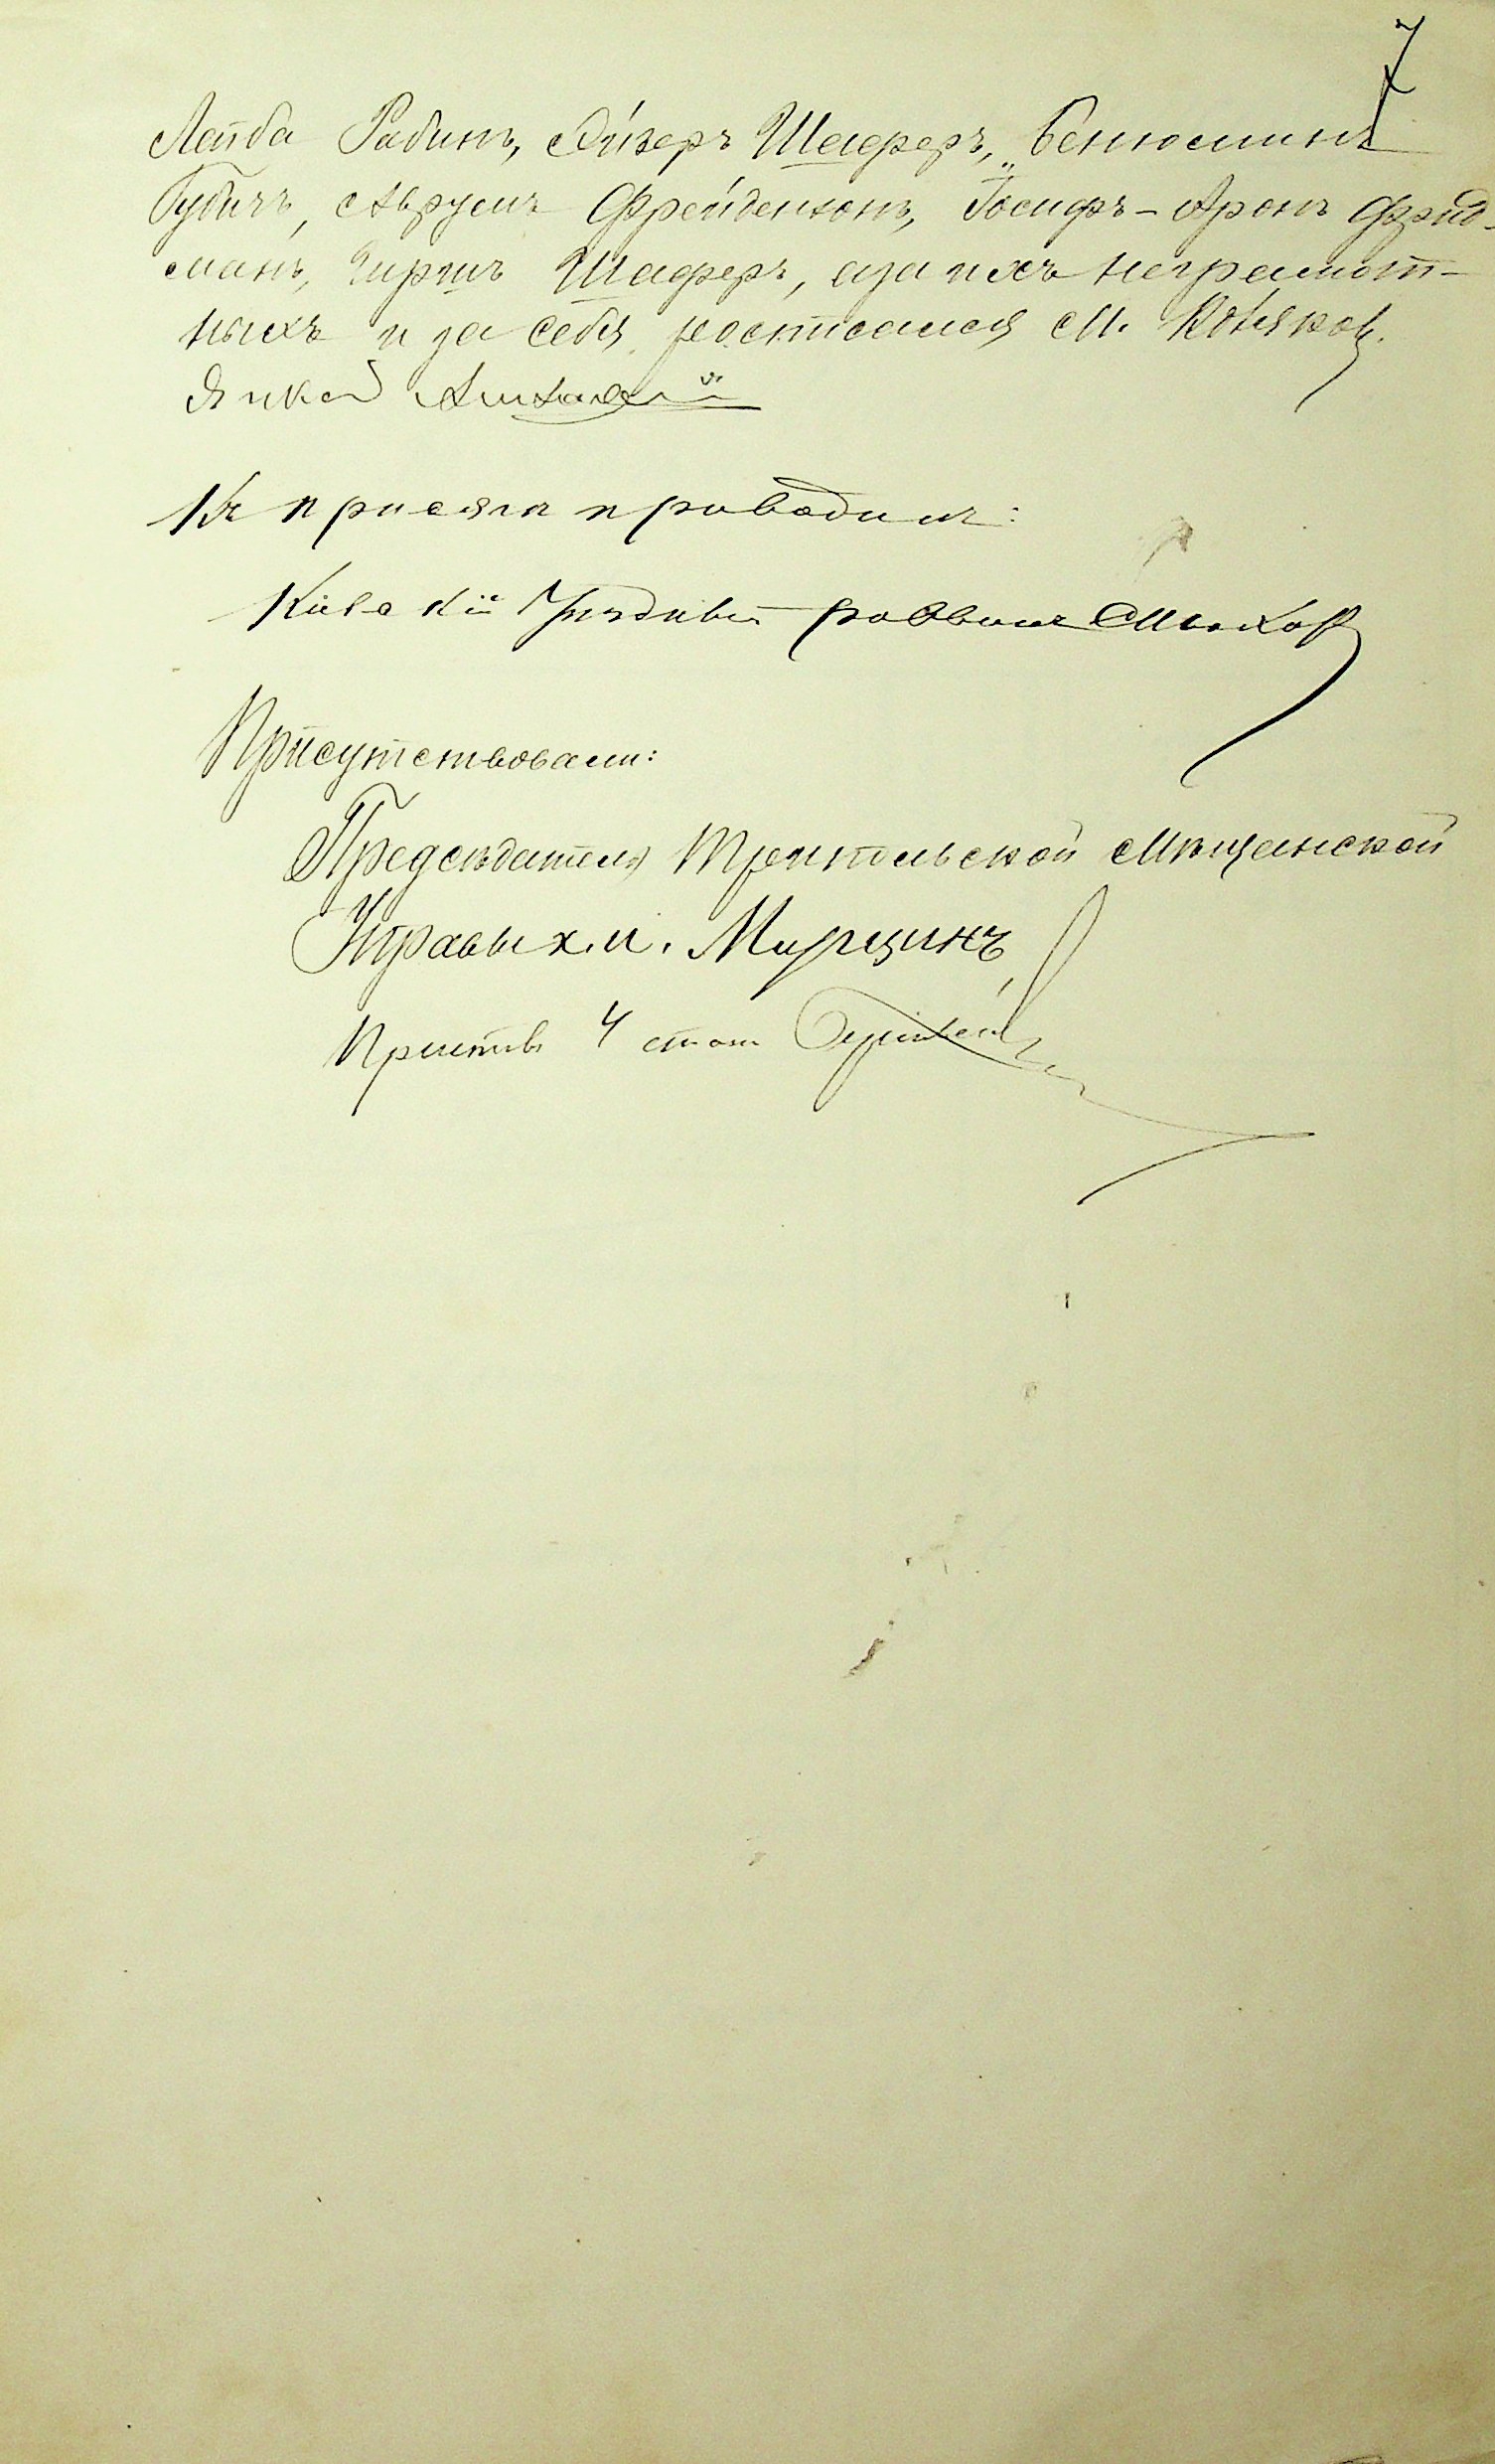 7
Лейба Рабинъ, Айзеръ Шаферъ, Бенюминъ
Губичъ, Аврумъ Фрейдензонъ, Іосифъ-Аронъ Фрид-
манъ, Гиршъ Шаферъ, а за нихъ неграмот-
ныхъ и за себя росписался М. Коняков.
Янкель
Къ присягѣ приводилъ:
Кіевскій Уѣздный раввинъ
Присутствовали:
Предсѣдатель Трипольской Мѣщанской
Управы х. и. Мирщинъ
Приставъ 4 стан